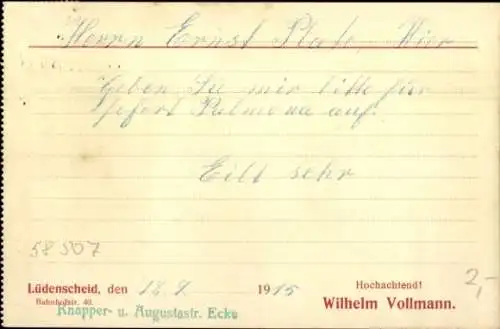 Herrn Ernst Plate, Hier
Geben Sie mir bitte für
sofort Palmona auf.
Eilt sehr
58507
2,-
Lüdenscheid, den 18.9. 1915
Bahnhofstr. 40.
Knapper- u. Augustastr. Ecke
Hochachtend!
Wilhelm Vollmann.